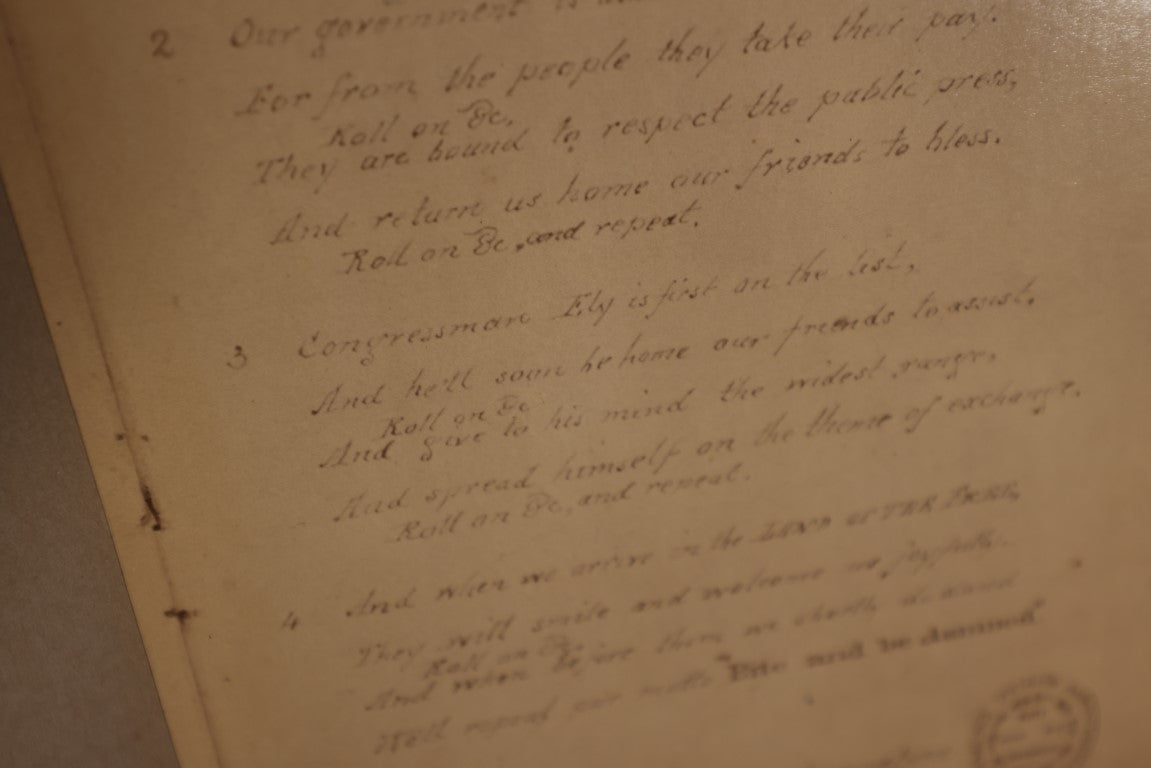 2 Our government is
For from the people they take their pay.
Roll on &c.
They are bound to respect the public press,
And return us home our friends to bless.
Roll on &c, and repeat.
3 Congressman Ely is first on the list,
And he'll soon be home our friends to assist.
Roll on &c
And give to his mind the widest range,
And spread himself on the theme of exchange.
Roll on &c, and repeat.
4 And when we arrive in the LAND OF THE FREE,
They will smile and welcome us joyfully.
Roll on &c.
And when before them we
We'll repeat our motto "Bite and be damned"